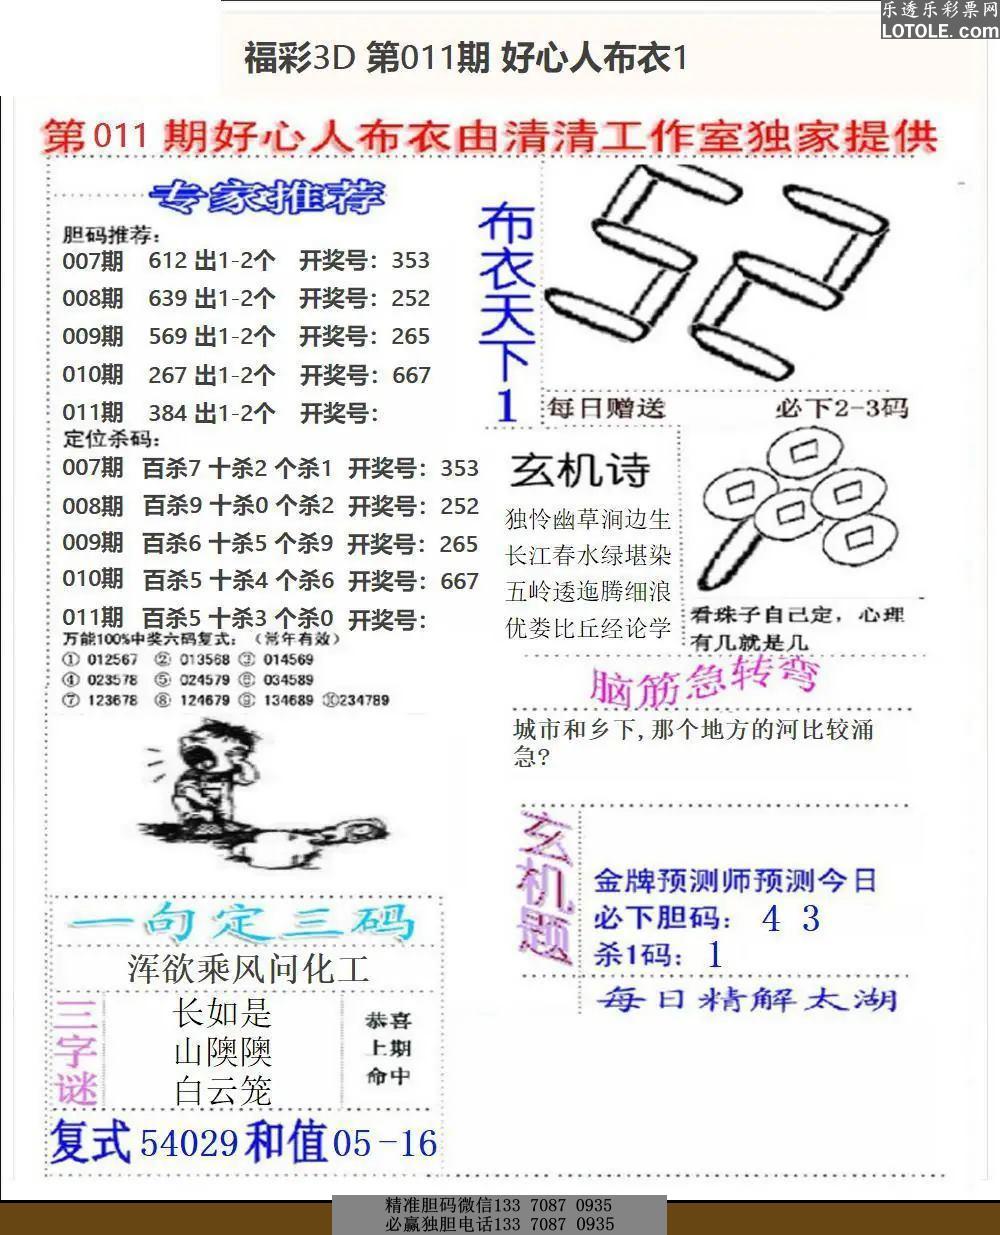 乐透乐彩票网
LOTOLE.com
福彩3D 第011期 好心人布衣1
第 011 期好心人布衣由清清工作室独家提供
专家推荐
胆码推荐：
007期 612 出1-2个 开奖号：353
008期 639 出1-2个 开奖号：252
009期 569 出1-2个 开奖号：265
010期 267 出1-2个 开奖号：667
011期 384 出1-2个 开奖号：
定位杀码：
007期 百杀7 十杀2 个杀1 开奖号：353
008期 百杀9 十杀0 个杀2 开奖号：252
009期 百杀6 十杀5 个杀9 开奖号：265
010期 百杀5 十杀4 个杀6 开奖号：667
011期 百杀5 十杀3 个杀0 开奖号：
万能100%中奖六码复式：（常年有效）
① 012567 ② 013568 ③ 014569
④ 023578 ⑤ 024579 ⑥ 034589
⑦ 123678 ⑧ 124679 ⑨ 134689 ⑩234789
一句定三码
浑欲乘风问化工
三字谜
长如是
山隩隩
白云笼
恭喜
上期
命中
复式 54029 和值 05-16
布衣天下1
52
每日赠送 必下2-3码
玄机诗
独怜幽草涧边生
长江春水绿堪染
五岭逶迤腾细浪
优娄比丘经论学
看珠子自己定，心理
有几就是几
脑筋急转弯
城市和乡下,那个地方的河比较涌
急?
玄机题
金牌预测师预测今日
必下胆码： 4 3
杀1码： 1
每日精解太湖
精准胆码微信133 7087 0935
必赢独胆电话133 7087 0935